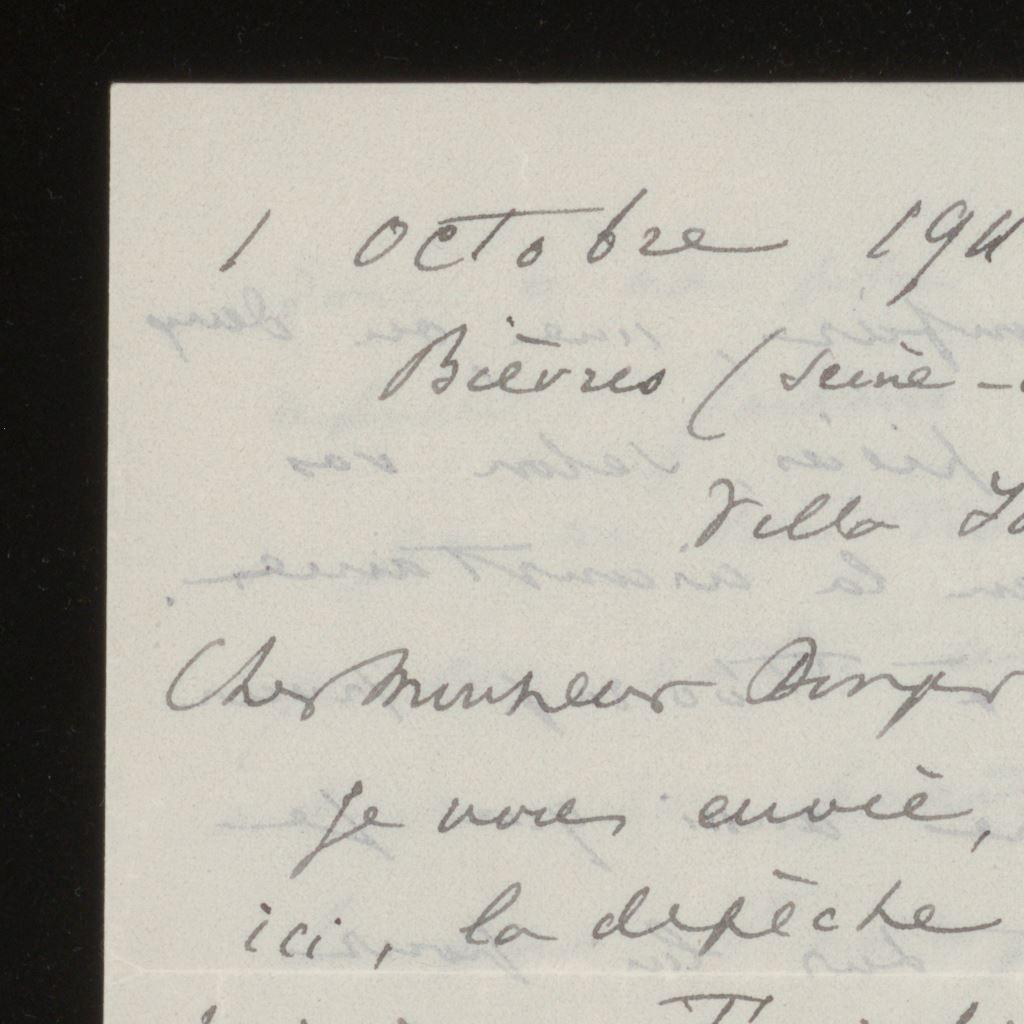 1 Octobre 19
Bièvres (Seine-
Villa
Cher Monsieur
Je vous envoie,
ici, la depèche